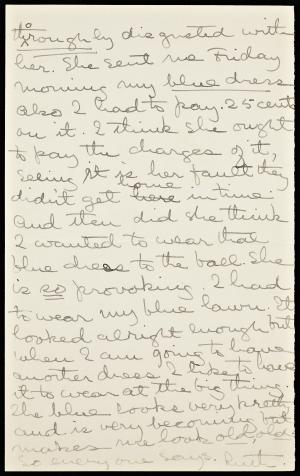 thoroughly disgusted with
her. She sent me Friday
morning my blue dress
also I had to pay .25 cents
on it. I think she ought
to pay the charges of it,
seeing it is her fault they
didn't get home in time.
And then did she think
I wanted to wear that
blue dress to the ball. She
is so provoking. I had
to wear my blue lawn. It
looked alright enough but
when I am going to have
another dress I like to have
it to wear at the big thing.
The blue looks very pretty
and is very becoming but
makes me look old old.
So every one says. but